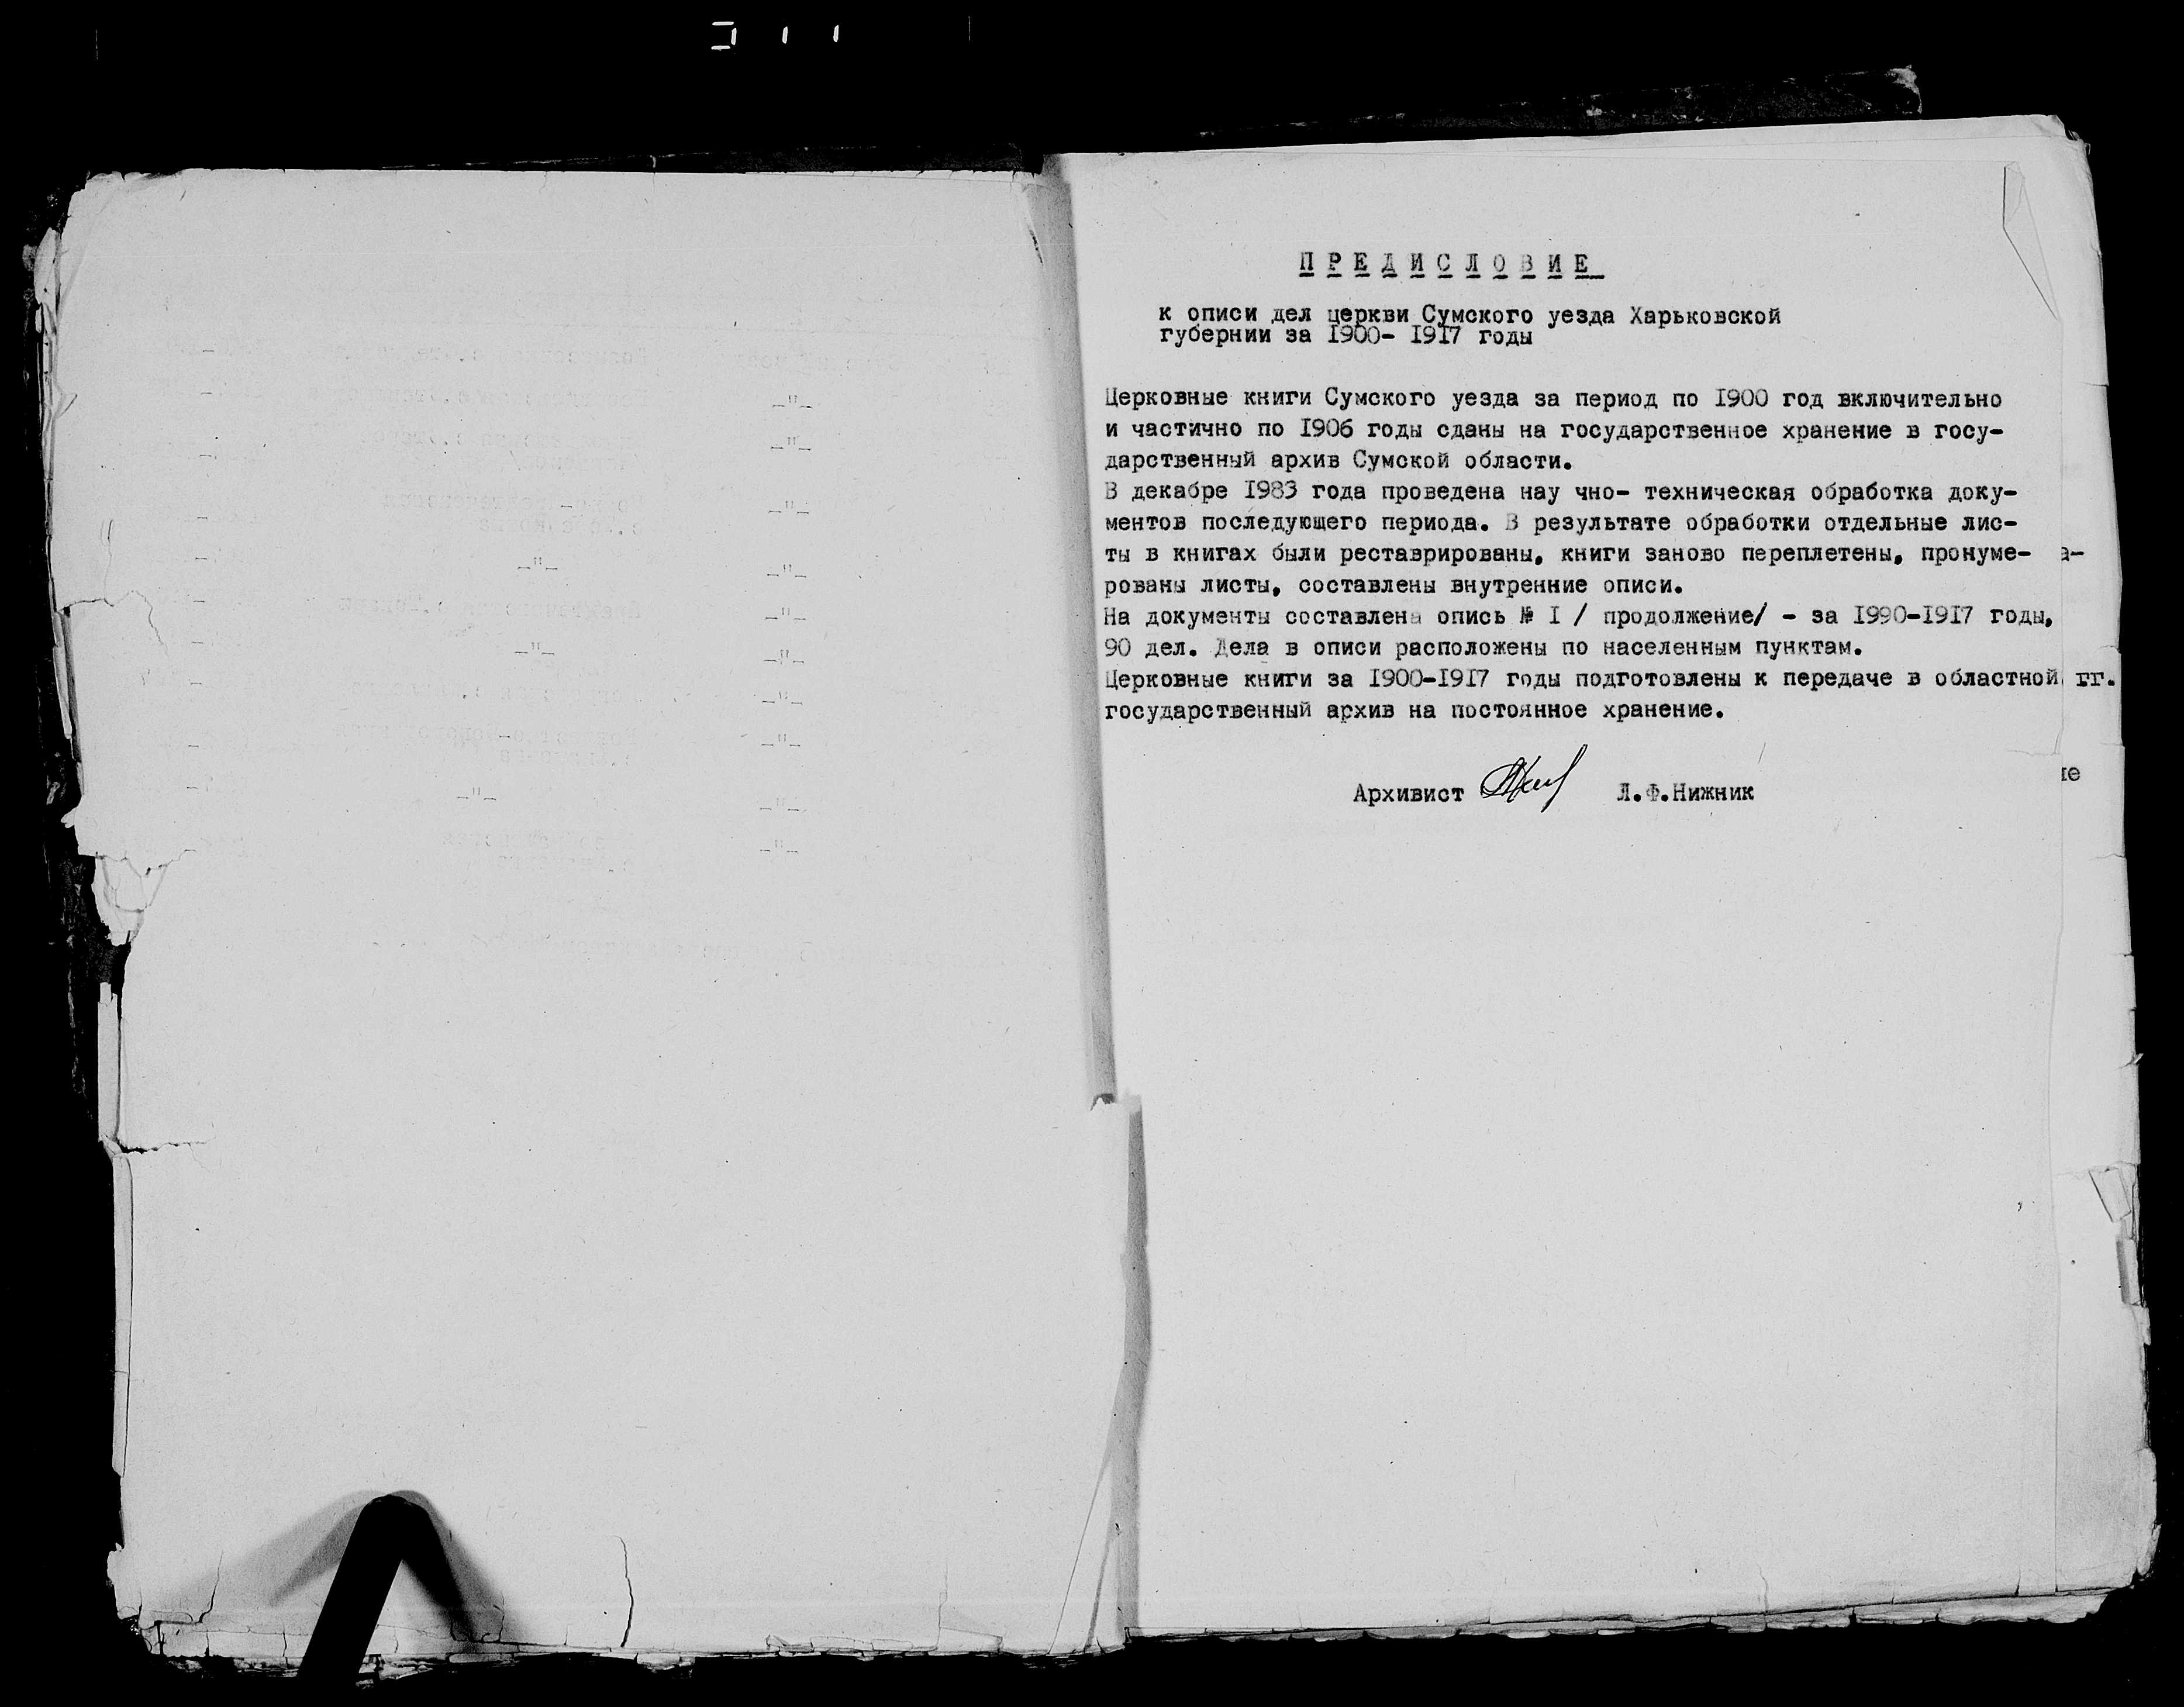 ПРЕДИСЛОВИЕ
к описи дел церкви Сумского уезда Харьковской
губернии за 1900- 1917 годы
Церковные книги Сумского уезда за период по 1900 год включительно
и частично по 1906 годы сданы на государственное хранение в госу-
дарственный архив Сумской области.
В декабре 1983 года проведена нау чно- техническая обработка доку-
ментов последующего периода. В результате обработки отдельные лис-
ты в книгах были реставрированы, книги заново переплетены, пронуме-
рованы листы, составлены внутренние описи.
На документы составлена опись № I / продолжение/ - за 1990-1917 годы,
90 дел. Дела в описи расположены по населенным пунктам.
Церковные книги за 1900-1917 годы подготовлены к передаче в областной
государственный архив на постоянное хранение.
Архивист Л.Ф.Нижник
а-
гг.